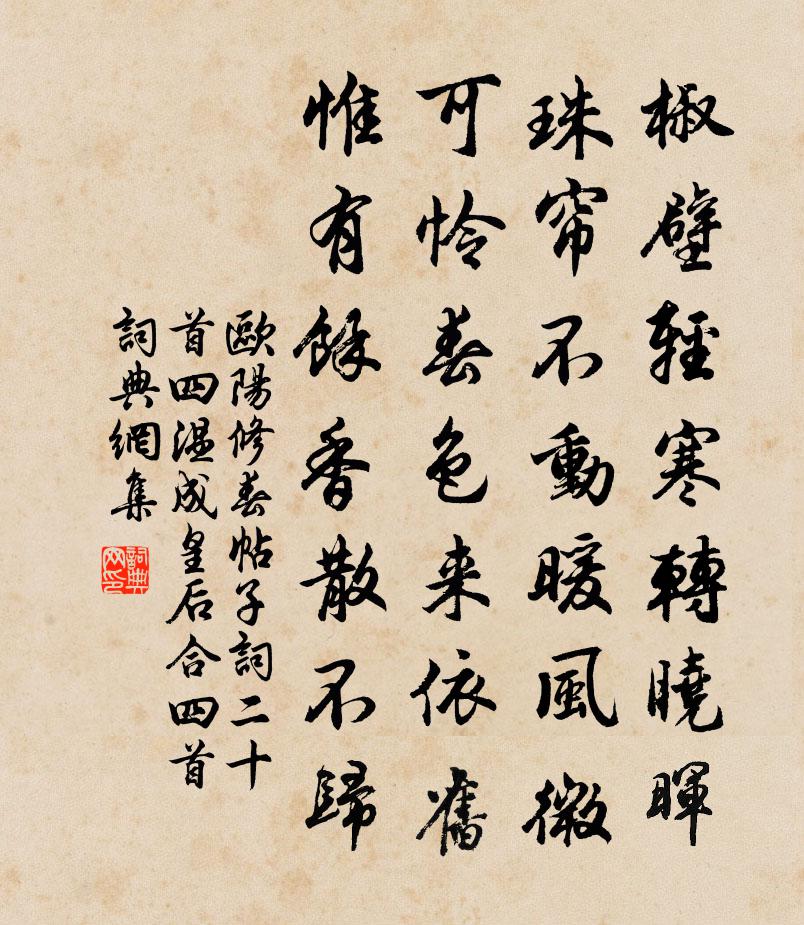 椒壁輕寒轉曉暉
珠帘不動暖風微
可怜春色来依舊
惟有餘香散不歸
歐陽修春帖子詞二十
首四溫成皇后合四首
詞典網集
詞典网印